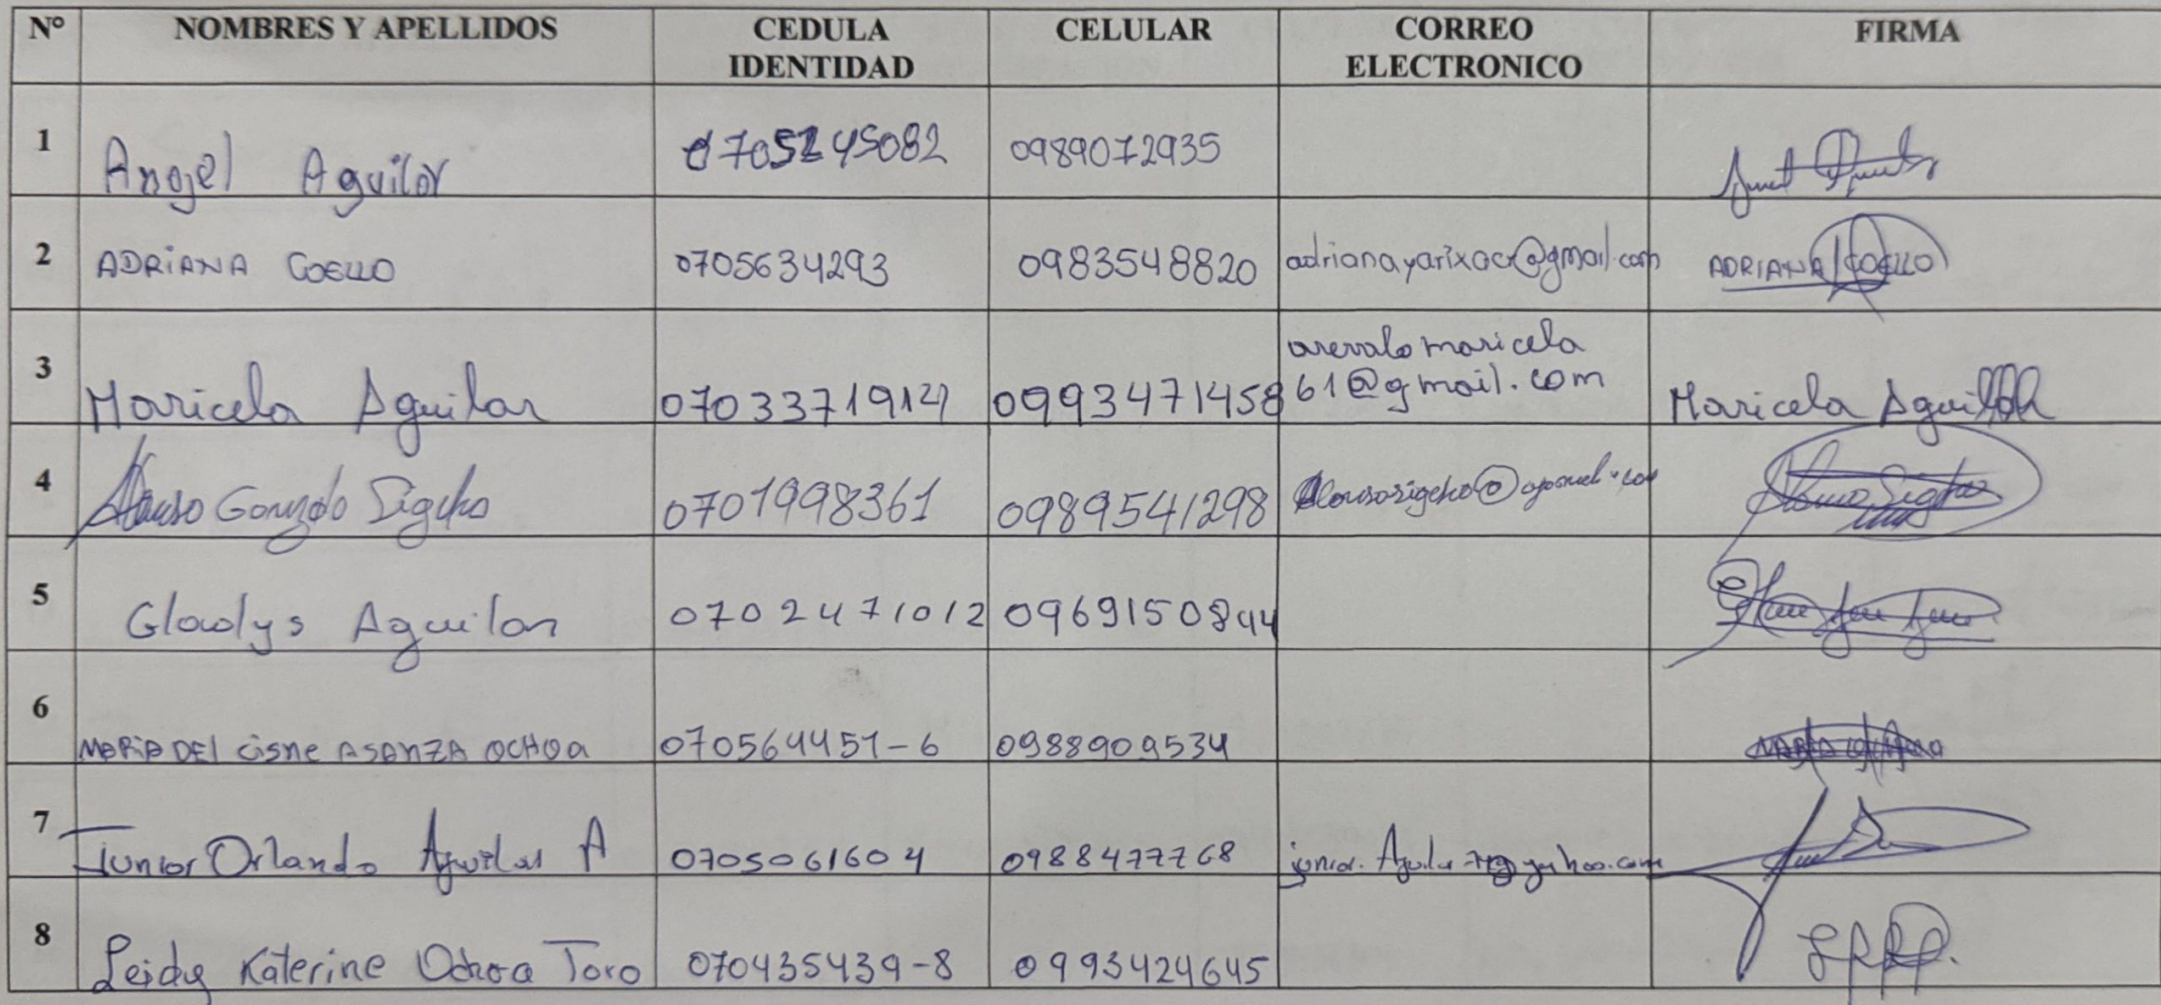 N° NOMBRES Y APELLIDOS CEDULA IDENTIDAD CELULAR CORREO ELECTRONICO FIRMA
1 Angel Aguilar 0705245082 0989072935
2 ADRIANA COELLO 0705634293 0983548820 adrianayarixacr@gmail.com ADRIANA COELLO
3 Maricela Aguilar 0703371914 0993471458 arevalomaricela
61@gmail.com Maricela Aguilar
4 Alonso Gonzalo Sigcho 0701998361 0989541298
5 Gladys Aguilar 0702471012 0969150844
6 MARIA DEL CISNE ASANZA OCHOA 070564451-6 0988909534
7 Junior Orlando Aguilar A 0705061604 0988477768
8 Leidy Katerine Ochoa Toro 070435439-8 0993424645